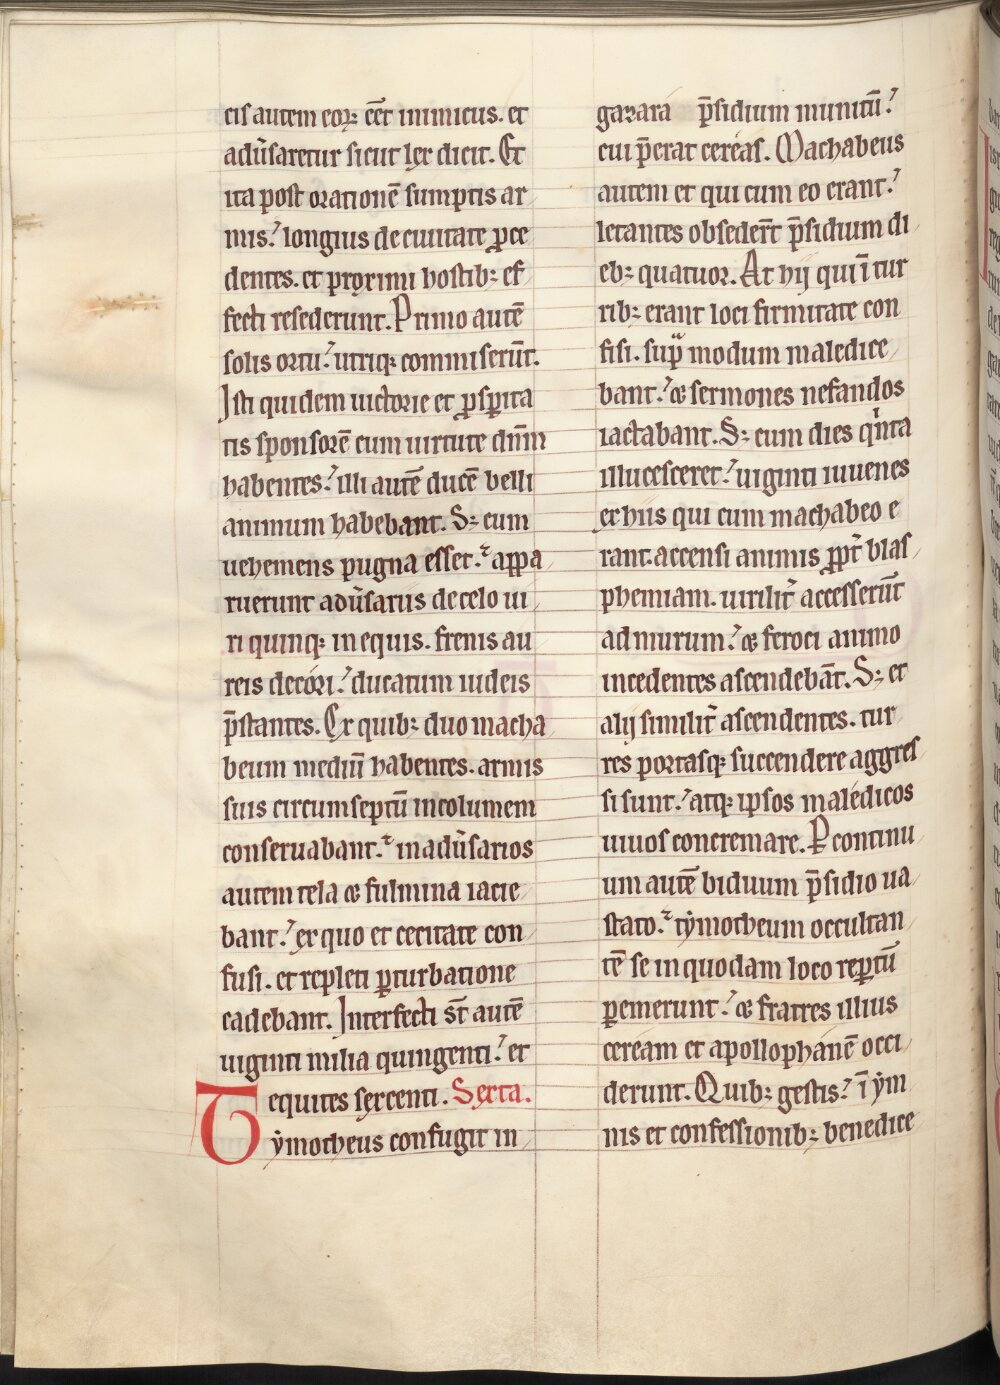 cis autem eoꝝ eēt inimicus. et
adu̾saretur sicut lex dicit. Et
ita post orationē sumptis ar
mis. longius de ciuitate ꝓce
dentes. et proximi hostibꝫ ef
fecti resederunt. Primo autē
solis ortu. utriqꝫ commiserūt.
Isti quidem uictorie et ꝓsꝑita
tis sponsorē cum uirtute dn̄m
habentes. illi autē ducē belli
animum habebant. Sꝫ cum
uehemens pugna esset. appa
ruerunt adu̾sariis de celo ui
ri quinqꝫ in equis. frenis au
reis decori. ducatum iudeis
p̄stantes. Ex quibꝫ duo macha
beum mediū habentes. armis
suis circumseptū incolumem
conseruabant. in adu̾sarios
autem tela & fulmina iacie
bant. ex quo et cecitate con
fusi. et repleti ꝑturbatione
cadebant. Interfecti st̄ autē
uiginti milia quingenti. et
equites sexcenti. Sexta.
Tẏmotheus confugit in
gazara p̄sidium munitū.
cui p̄erat cereas. Machabeus
autem et qui cum eo erant.
letantes obseder̄t p̄sidium di
ebꝫ quatuor. At hij qui ī tur
ribꝫ erant loci firmitate con
fisi. supͣ modum maledice
bant. & sermones nefandos
iactabant. Sꝫ cum dies qͥnta
illucesceret. uiginti iuuenes
ex hiis qui cum machabeo e
rant. accensi animis ꝓpt̾ blas
phemiam. uirilit̾ accesserūt
ad murum. & feroci animo
incedentes ascendebāt. Sꝫ et
alij similit̾ ascendentes. tur
res portasqꝫ succendere aggres
si sunt. atqꝫ ipsos maledicos
uiuos concremare. Ꝑ continu
um autē biduum p̄sidio ua
stato. tẏmotheum occultan
tē se in quodam loco reꝑtū
ꝑemerunt. & fratres illius
ceream et apollophanē occi
derunt. Quibꝫ gestis. ī ẏm
nis et confessionibꝫ benedice